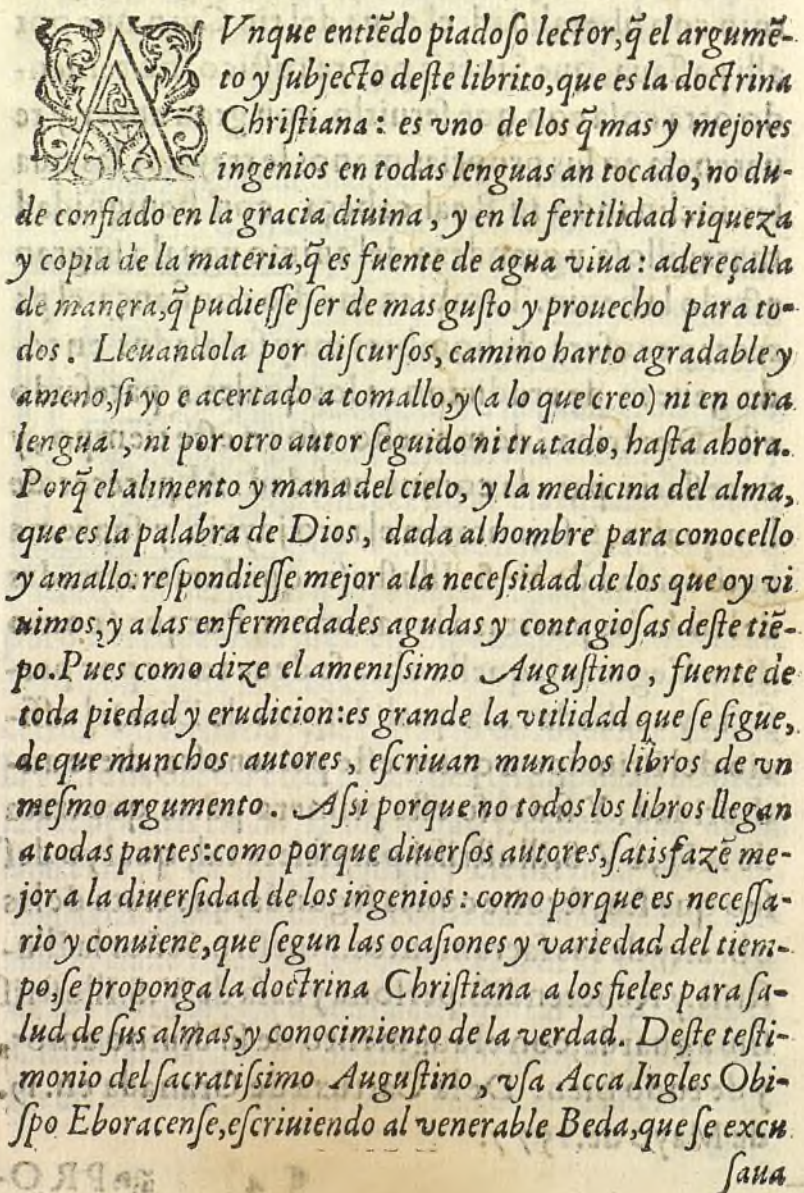 AVnque entiẽdo piadoſo lector,q̃ el argumẽ-
to y ſubjecto deſte librito,que es la doctrina
Chriſtiana: es vno de los q̃ mas y mejores
ingenios en todas lenguas an tocado, no du-
de confiado en la gracia diuina, y en la fertilidad riqueza
y copia de la materia,q̃ es fuente de agua viua: adereçalla
de manera,q̃ pudieſſe ſer de mas guſto y prouecho para to-
dos. Lleuandola por diſcurſos, camino harto agradable y
ameno,ſi yo e acertado a tomallo,y (a lo que creo) ni en otra
lengua, ni por otro autor ſeguido ni tratado, haſta ahora.
Porq̃ el alimento y mana del cielo, y la medicina del alma,
que es la palabra de Dios, dada al hombre para conocello
y amallo: reſpondieſſe mejor a la neceſsidad de los que oy vi
uimos,y a las enfermedades agudas y contagioſas deſte tiẽ-
po.Pues como dize el ameniſsimo Auguſtino, fuente de
toda piedad y erudicion:es grande la vtilidad que ſe ſigue,
de que munchos autores, eſcriuan munchos libros de vn
meſmo argumento. Aſsi porque no todos los libros llegan
a todas partes:como porque diuerſos autores,ſatisfazẽ me-
jor a la diuerſidad de los ingenios: como porque es neceſſa-
rio y conuiene,que ſegun las ocaſiones y variedad del tiem-
po,ſe proponga la doctrina Chriſtiana a los fieles para ſa-
lud de ſus almas,y conocimiento de la verdad. Deſte teſti-
monio del ſacratiſsimo Auguſtino, vſa Acca Ingles Obi-
ſpo Eboracenſe,eſcriuiendo al venerable Beda,que ſe excu
ſaua